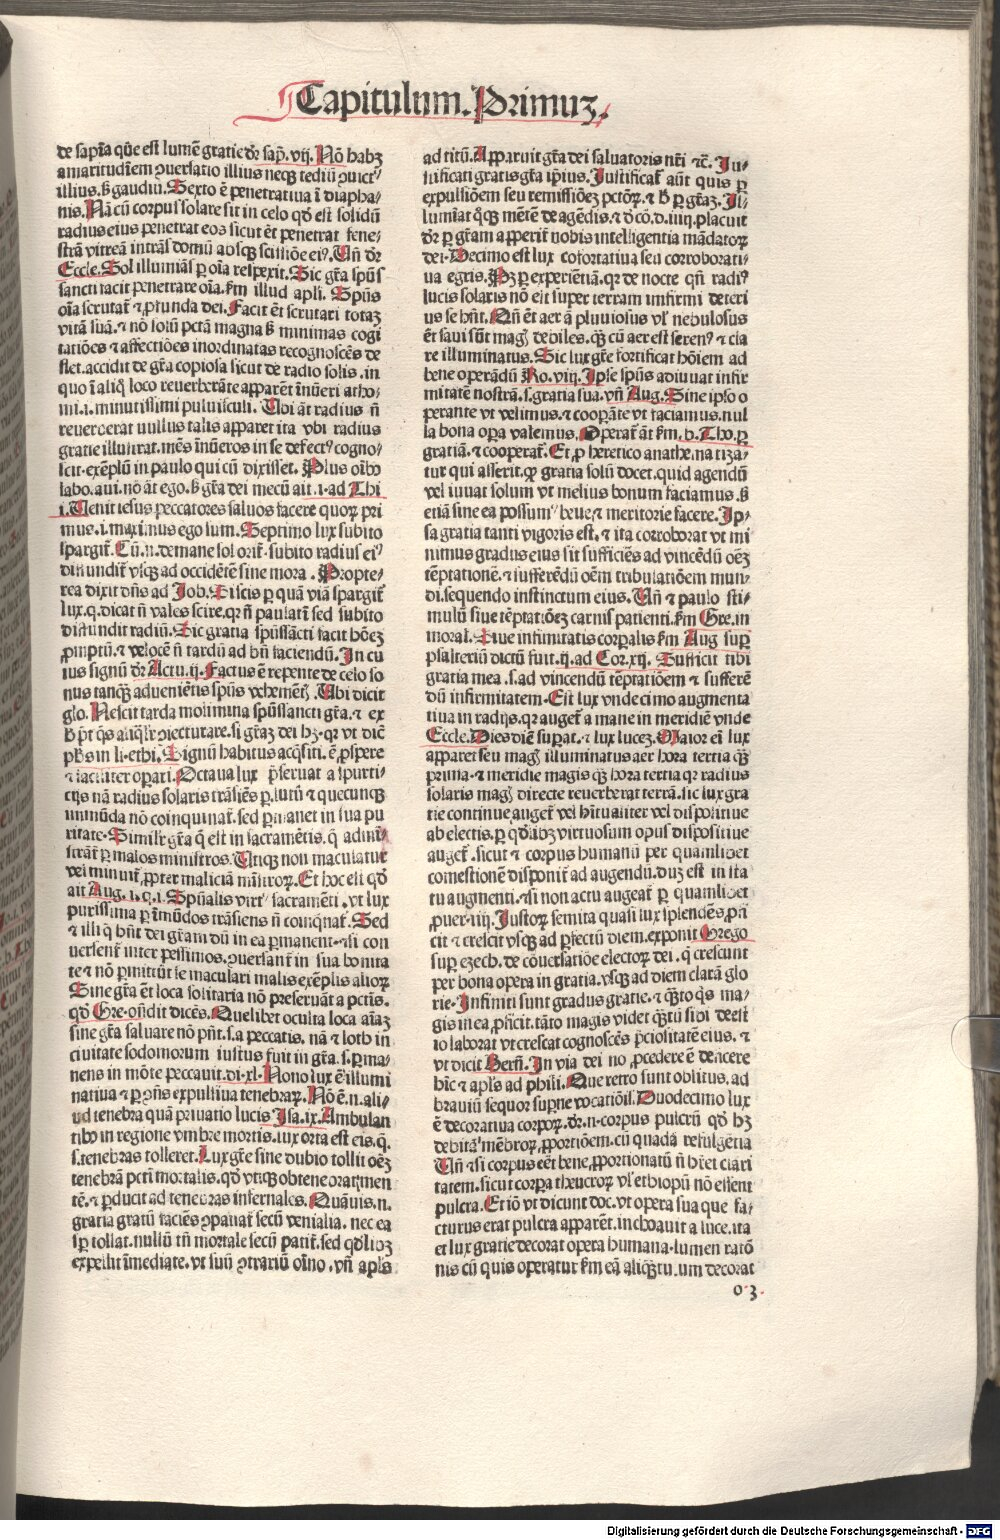 Capitulum. Primuz.
de sapīa que est lumē gratie dr sap. vij. Nō habz
amaritudinem ꝯuersatio illius necqꝫ tediū ꝯuictꝰ
illius. sꝫ gaudiū. Sexto ē penetratiua ī diapha/
nis. Nā cū corpus solare sit in celo qd est solidū
radius eius penetrat eos sicut ēt penetrat fene/
strā vitreā intrās domū absqꝫ scissiōe eiꝰ. Un̄ dr
Eccle. Sol illuminās ꝑ oīa respexit. Sic grā spūs
sancti facit penetrare oīa. fm illud apli. Spūs
oīa scrutat̄ ⁊ ꝓfunda dei. Facit ēt scrutari totaꝫ
vitā suā. ⁊ nō solū pctā magna sꝫ minimas cogi
tatiōes ⁊ affectiōes inordinatas recognoscēs de
flet. accidit de grā copiosa sicut de radio solis. in
quo ī aliq̄ loco reuerberāte apparēt īnūeri atho/
mi .i. minutissimi puluisculi. Ubi āt radius n̄
reuerberat nullus talis apparet ita vbi radius
gratie illustrat. mēs īnūeros in se defectꝰ cogno/
scit. exēplū in paulo qui cū dixisset. Plus oībꝰ
labo. aui. nō āt ego. sꝫ grā dei mecū ait .i. ad Thi
i. Uenit iesus peccatores saluos facere quoꝝ pri
mus .i. maximus ego sum. Septimo lux subito
spargit̄. Cū .n. de mane sol orit̄. subito radius eiꝰ
diffundit̄ vsqꝫ ad occidētē sine mora. Propte/
rea dixit dn̄s ad Job. Discis ꝑ quā viā spargit̄
lux. q. dicat n̄ vales scire. qꝛ n̄ paulatī sed subito
diffundit radiū. Sic gratia spūssāncti facit hōieꝫ
ꝓmptū. ⁊ velocē n̄ tardū ad bn̄ faciendū. In cu
ius signū dr Actu. ij. Factus ē repente de celo so
nus tanqꝫ̄ aduenientis spūs vehementꝭ. Ubi dicit
glo. Nescit tarda molimina spūssancti grā. ⁊ ex
h̄ pt qs aliqlr ꝯiecturare. si graꝫ dei hꝫ. qꝛ vt dic̄
phs in li. ethi. Signū habitus acqsiti. ē ꝓspere
⁊ faciliter operari. Octaua lux p̄seruat a spurti/
cijs nā radius solaris trāsies ꝑ lutū ⁊ quecunqꝫ
immūda nō coinquinat̄. sed ꝑmanet in sua pu
ritate. Similr grā q̄ est in sacramētis. q̄ admi/
strāt̄ ꝑ malos ministros. Utiqꝫ non maculatur
vel minuit̄ ꝓpter maliciā mīstroꝝ. Et hoc est qd
ait Aug. i. q. i. Spūalis virtꝰ sacramēti. vt lux
purissima ꝑ īmūdos trāsiens n̄ coinqnat̄. Sed
⁊ illi q hn̄t dei grām dū in ea ꝑmanent. ⁊ si con
uersent̄ inter pessimos. ꝑseruant̄ in sua bonita
te ⁊ nō ꝑmittūt se maculari malis exēplis alioꝝ
Sine grā ēt loca solitaria nō preseruāt a pctis.
qd Gre. oñdit dicēs. Quelibet oculta loca aīaꝫ
sine grā saluare nō pn̄t. s. a peccatis. nā ⁊ loth in
ciuitate sodomorum iustus fuit in grā. s. ꝑma/
nens in mōte peccauit. di. xl. Nono lux ē illumi
natiua ⁊ ꝑ ꝯn̄s expulsiua tenebraꝝ. Nō ē .n. ali/
ud tenebra quā priuatio lucis Isa. ix. Ambulan
tibꝰ in regione vmbre mortis. lux orta est eis. q̄.
s. tenebras tolleret. Lux grē sine dubio tollit oēꝫ
tenebrā pcti mortalis. qd vtiqꝫ obtenebrat men
tē. ⁊ ꝑducit ad tenebras infernales. Quāuis .n.
gratia gratū faciēs ꝯpatiat̄ secū venialia. nec ea
sꝑ tollat. nullū tn̄ mortale secū patit̄. sed qdlibꝫ
expellit īmediate. vt suū ꝯtrariū oīno. vn̄ apls
ad titū. Apparuit grā dei saluatoris nr̄i ⁊c. Ju/
stificati gratis grā ipsius. Justificat̄ aūt quis ꝑ
expulsiōem seu remissiōeꝫ pctoꝝ. ⁊ h̄ ꝑ grāꝫ. Il/
lumīat qꝫqꝫ mētē de agēdis. ⁊ d cō. d. iiij. placuit
dr ꝑ grām apperit̄ nobis intelligentia mādatoꝝ
dei. Decimo est lux cōfortatiua seu corroborati/
ua egris. Pꝫ ꝑ experiētiā. qꝛ de nocte qn̄ radiꝰ
lucis solaris nō est super terram infirmi deteri
us se hn̄t. Qn̄ ēt aer ē pluuiosus vl̄ nebulosus
ēt sani sūt magꝭ debiles. qꝫ cū aer est serenꝰ ⁊ cla
re illuminatus. Sic lux grē fortificat hōiem ad
bene operādū Ro. viij. Ipse spūs adiuuat infir
mitatē nostrā. s. gratia sua. vn̄ Aug. Sine ipso o
perante vt velimus. ⁊ cooperāte vt faciamus. nul
la bona opa valemus. Operat̄ āt fm. b. Tho. ꝑ
gratiā. ⁊ cooperat̄. Et ꝓ heretico anathe. natiza/
tur qui asserit. qꝫ gratia solū docet. quid agendū
vel iuuat solum vt melius bonum faciamus. sꝫ
etiā sine ea possumꝰ bene. ⁊ meritorie facere. Ip/
sa gratia tanti vigoris est. ⁊ ita corroborat vt mi
nimus gradus eius sit sufficiēs ad vincēdū oēꝫ
tēptationē. ⁊ sufferēdū oēm tribulatiōem mun/
di. sequendo instinctum eius. Un̄ ⁊ paulo sti/
mulū siue tēptatiōeꝫ carnis patienti. fm Gre. in
moral. Siue infirmitatis corꝑalis fm Aug suꝑ
psalteriū dictū fuit. ij. ad Cor. xij. Sufficit tibi
gratia mea. s. ad vincendū tēptatiōem ⁊ sufferē
dū infirmitatem. Est lux vndecimo augmenta
tiua in radijs. qꝛ auget̄ a mane in meridiē vnde
Eccle. Dies diē suꝑat. ⁊ lux luceꝫ. Maior ei lux
apparet seu magꝭ illuminatus aer hora tertia qꝫ̄
prima. ⁊ meridie magis qꝫ̄ hora tertia qꝛ radius
solaris magꝭ directe reuerberat terrā. sic lux gra
tie continue auget̄ vel hītualiter vel dispositiue
ab electis. ꝑ qdlibꝫ virtuosum opus dispositiue
auget̄. sicut ⁊ corpus humanū per quamlibet
comestionē disponit̄ ad augendū. duꝫ est in sta
tu augmenti. ⁊ si non actu augeat̄ ꝑ quamlibet
ꝓuer. iiij. Justoꝝ semita quasi lux splendēs ꝓfi
cit ⁊ crescit vsqꝫ ad ꝑfectū diem. exponit Grego
suꝑ ezech. de cōuersatiōe electoꝝ dei. q crescunt
per bona opera in gratia. vsqꝫ ad diem clarā glo
rie. Infiniti sunt gradus gratie. ⁊ qꝫto qs ma/
gis in ea ꝓficit. tāto magis videt qꝫtū sibi deest
io laborat vt crescat cognoscēs p̄ciositatē eius. ⁊
vt dicit Bern̄. In via dei no ꝓcedere ē deficere
hīc ⁊ apls ad phili. Que retro sunt oblitus. ad
brauiū sequor suꝑne vocatiōis. Duodecimo lux
ē decoratiua corpoꝝ. dr .n. corpus pulcrū qd hꝫ
debitā mēbroꝝ ꝓportiōem. cū quadā refulgētia
Un̄ ⁊ si corpus eēt bene ꝓportionatū n̄ hret clari
tatem. sicut corpa theucroꝝ vl̄ ethiopū nō essent
pulcra. Et iō vt dicunt doc. vt opera sua que fa/
cturus erat pulcra apparēt. inchoauit a luce. ita
et lux gratie decorat opera humana. lumen ratō
nis cū quis operatur fm eā aliqꝫ̄tulum decorat
o 3.
Digitalisierung gefördert durch die Deutsche Forschungsgemeinschaft - DFG